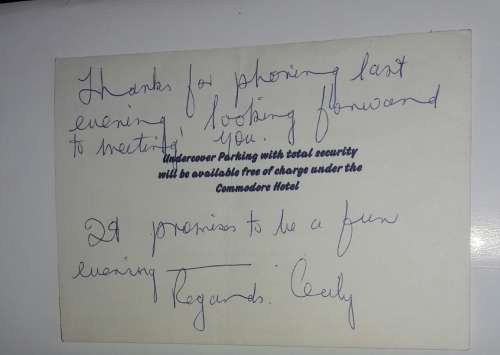 Thanks for phoning last
evening, looking forward
to meeting you.
Undercover Parking with total security
will be available free of charge under the
Commodore Hotel
It promises to be a fun
evening
Regards. Cecily